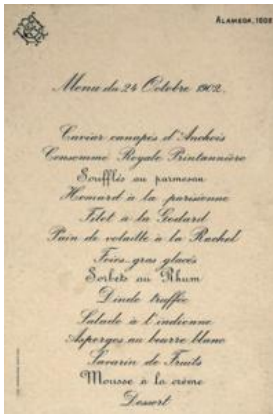 ALAMEDA, 1602
Menu du 24 Octobre 1902.
Caviar canapés d'Anchois
Consommé Royale Printannière
Soufflés au parmesan
Homard à la parisienne
Filet à la Godard
Pain de volaille à la Rachel
Foies-gras glacés
Sorbets au Rhum
Dinde truffée
Salade à l'indienne
Asperges au beurre blanc
Savarin de Fruits
Mousse à la crème
Dessert